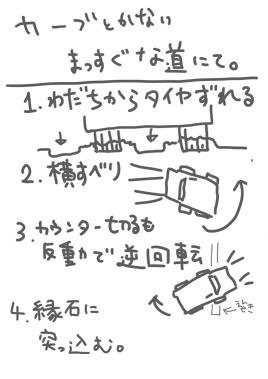 カーブとかない
まっすぐな道にて。
1.わだちからタイヤずれる
2.横すべり
3.カウンター切るも
反動で逆回転
4.縁石に
突っ込む。